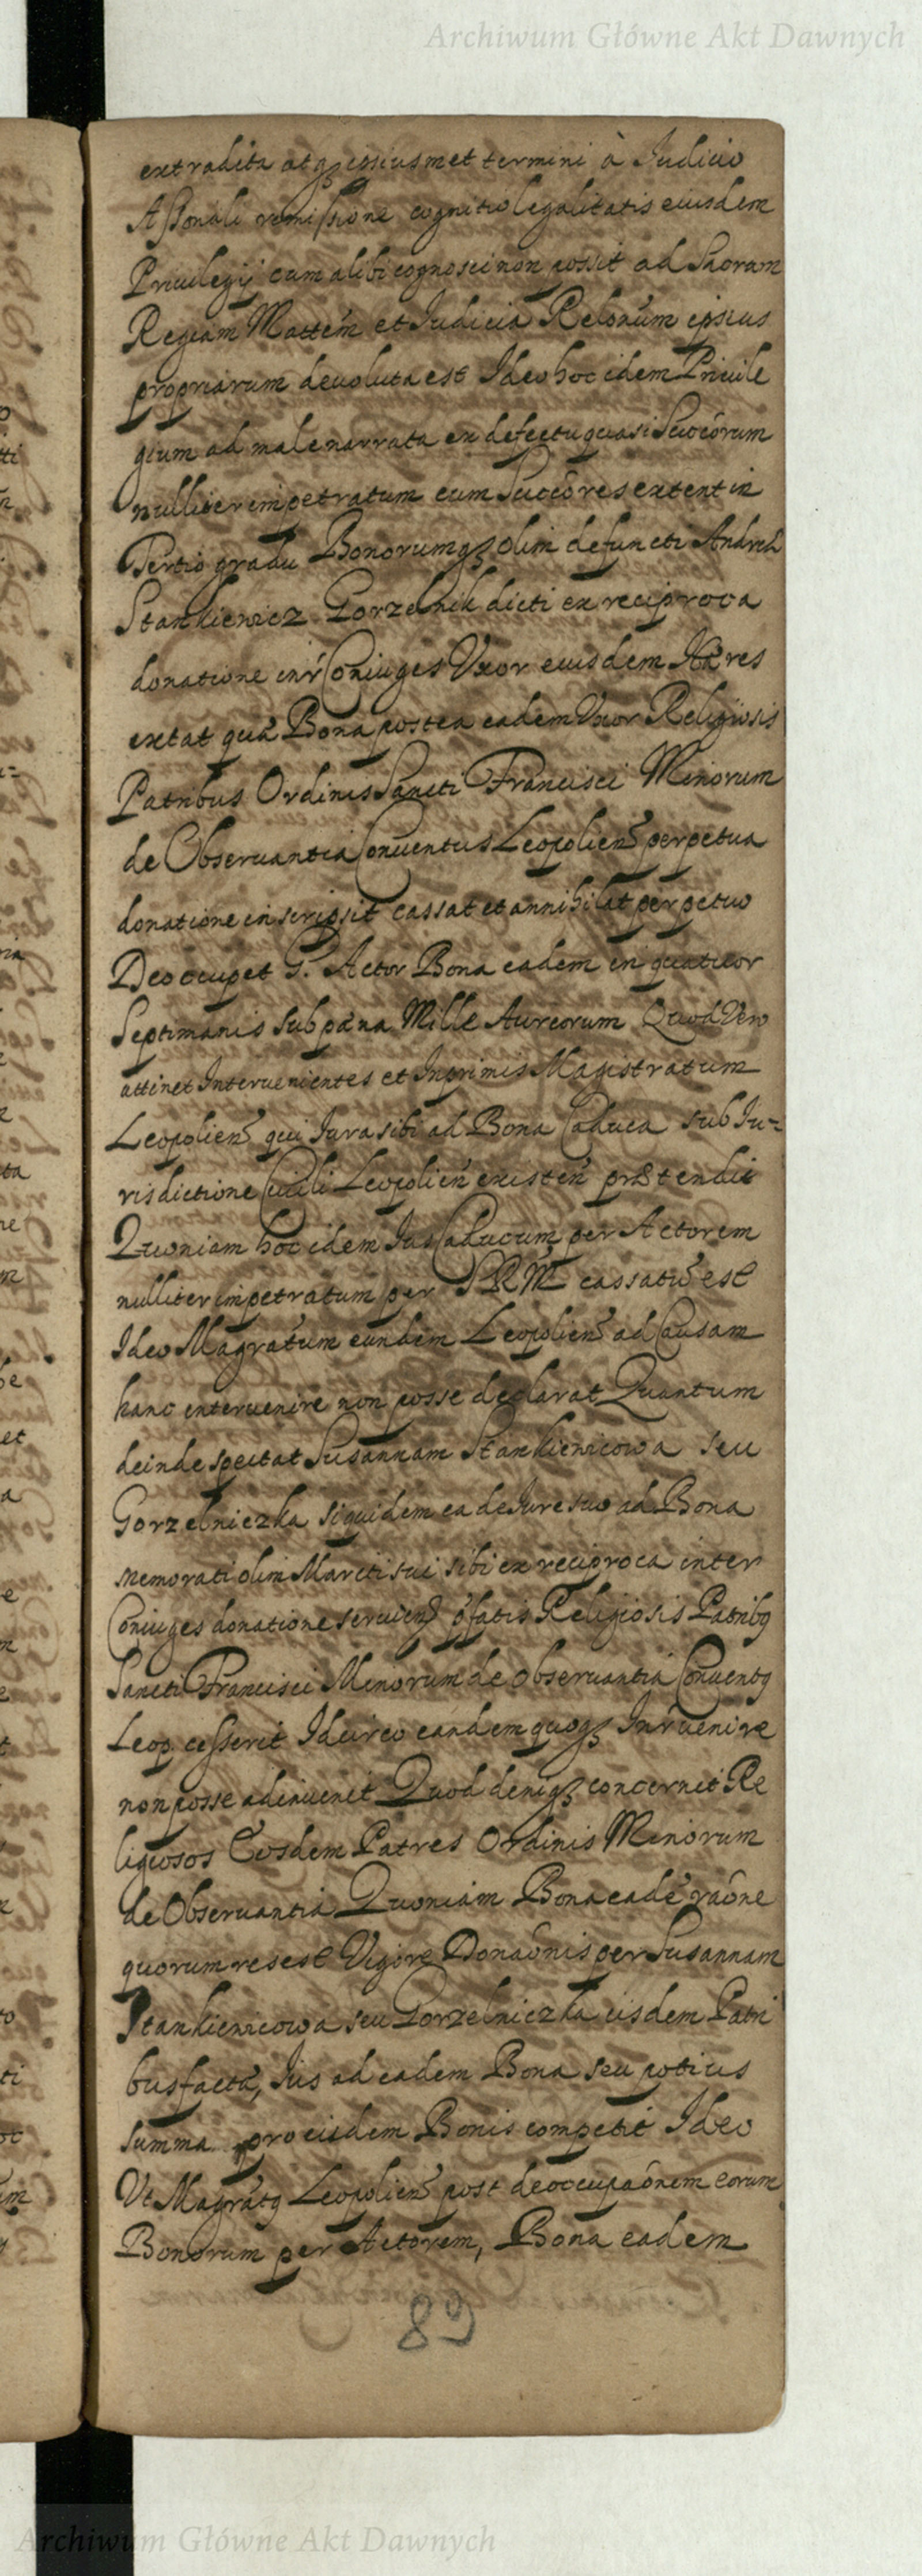 Archiwum Główne Akt Dawnych
extradita atq3 ipsiusmet termini à Iudicio
Assorali remissione cognitio legalitatis eiusdem
Priuilegij cum alibi cognosci non possit ad Sacram
Regiam Mattem et Iudicia Relonum ipsius
propriarum deuoluta est Ideo hoc idem Priuile
gium ad male narrata ex defectu quasi Succorum
nulliter impetratum cum Succores extent in
Tertio gradu Bonorumq3 olim defuncti Andreæ
Stankiewicz Gorzelnik dicti ex reciproca
donatione inr Coniuges Uxor eiusdem Hæres
extat quæ Bona postea eadem Uxor Religiosis
Patribus Ordinis Sancti Francisci Minorum
de Obseruantia Conuentus Leopolien perpetua
donatione inscripsit cassat et annihilat perpetuo
Deoccupet G. Actor Bona eadem in quatuor
Septimanis sub pæna Mille Aureorum Quod Vero
attinet Interuenientes et Inprimis Magistratum
Leopolien qui Iura sibi ad Bona Caduca sub Iu=
risdictione Ciuili Leopolien existen prætendit
Quoniam hoc idem Ius Caducum per Actorem
nulliter impetratum per SRM cassatu est
Ideo Magratum eundem Leopolien ad Causam
hanc interuenire non posse declarat Quantum
deinde spectat Susannam Stankiewicowa seu
Gorzelniczka siquidem ea de Iure suo ad Bona
memorati olim Mariti sui sibi ex reciproca inter
Coniuges donatione seruien pfatis Religiosis Patribq
Sancti Francisci Minorum de Obseruantia Conuentq
Leop. cesserit Idcirco eandem quoq3 Inruenire
non posse adinuenit Quod deniq3 concernit Re
ligiosos Eosdem Patres Ordinis Minorum
de Obseruantia Quoniam Bona eadé raône
quorum res est Vigore Donaônis per Susannam
Stankiewicowa seu Gorzelniczka iisdem Patri
bus factæ, Ius ad eadem Bona seu potius
summa pro eisdem Bonis competit Ideo
Ut Magratq Leopolien post deoccupaônem eorum
Bonorum per Actorem, Bona eadem
89
Archiwum Główne Akt Dawnych